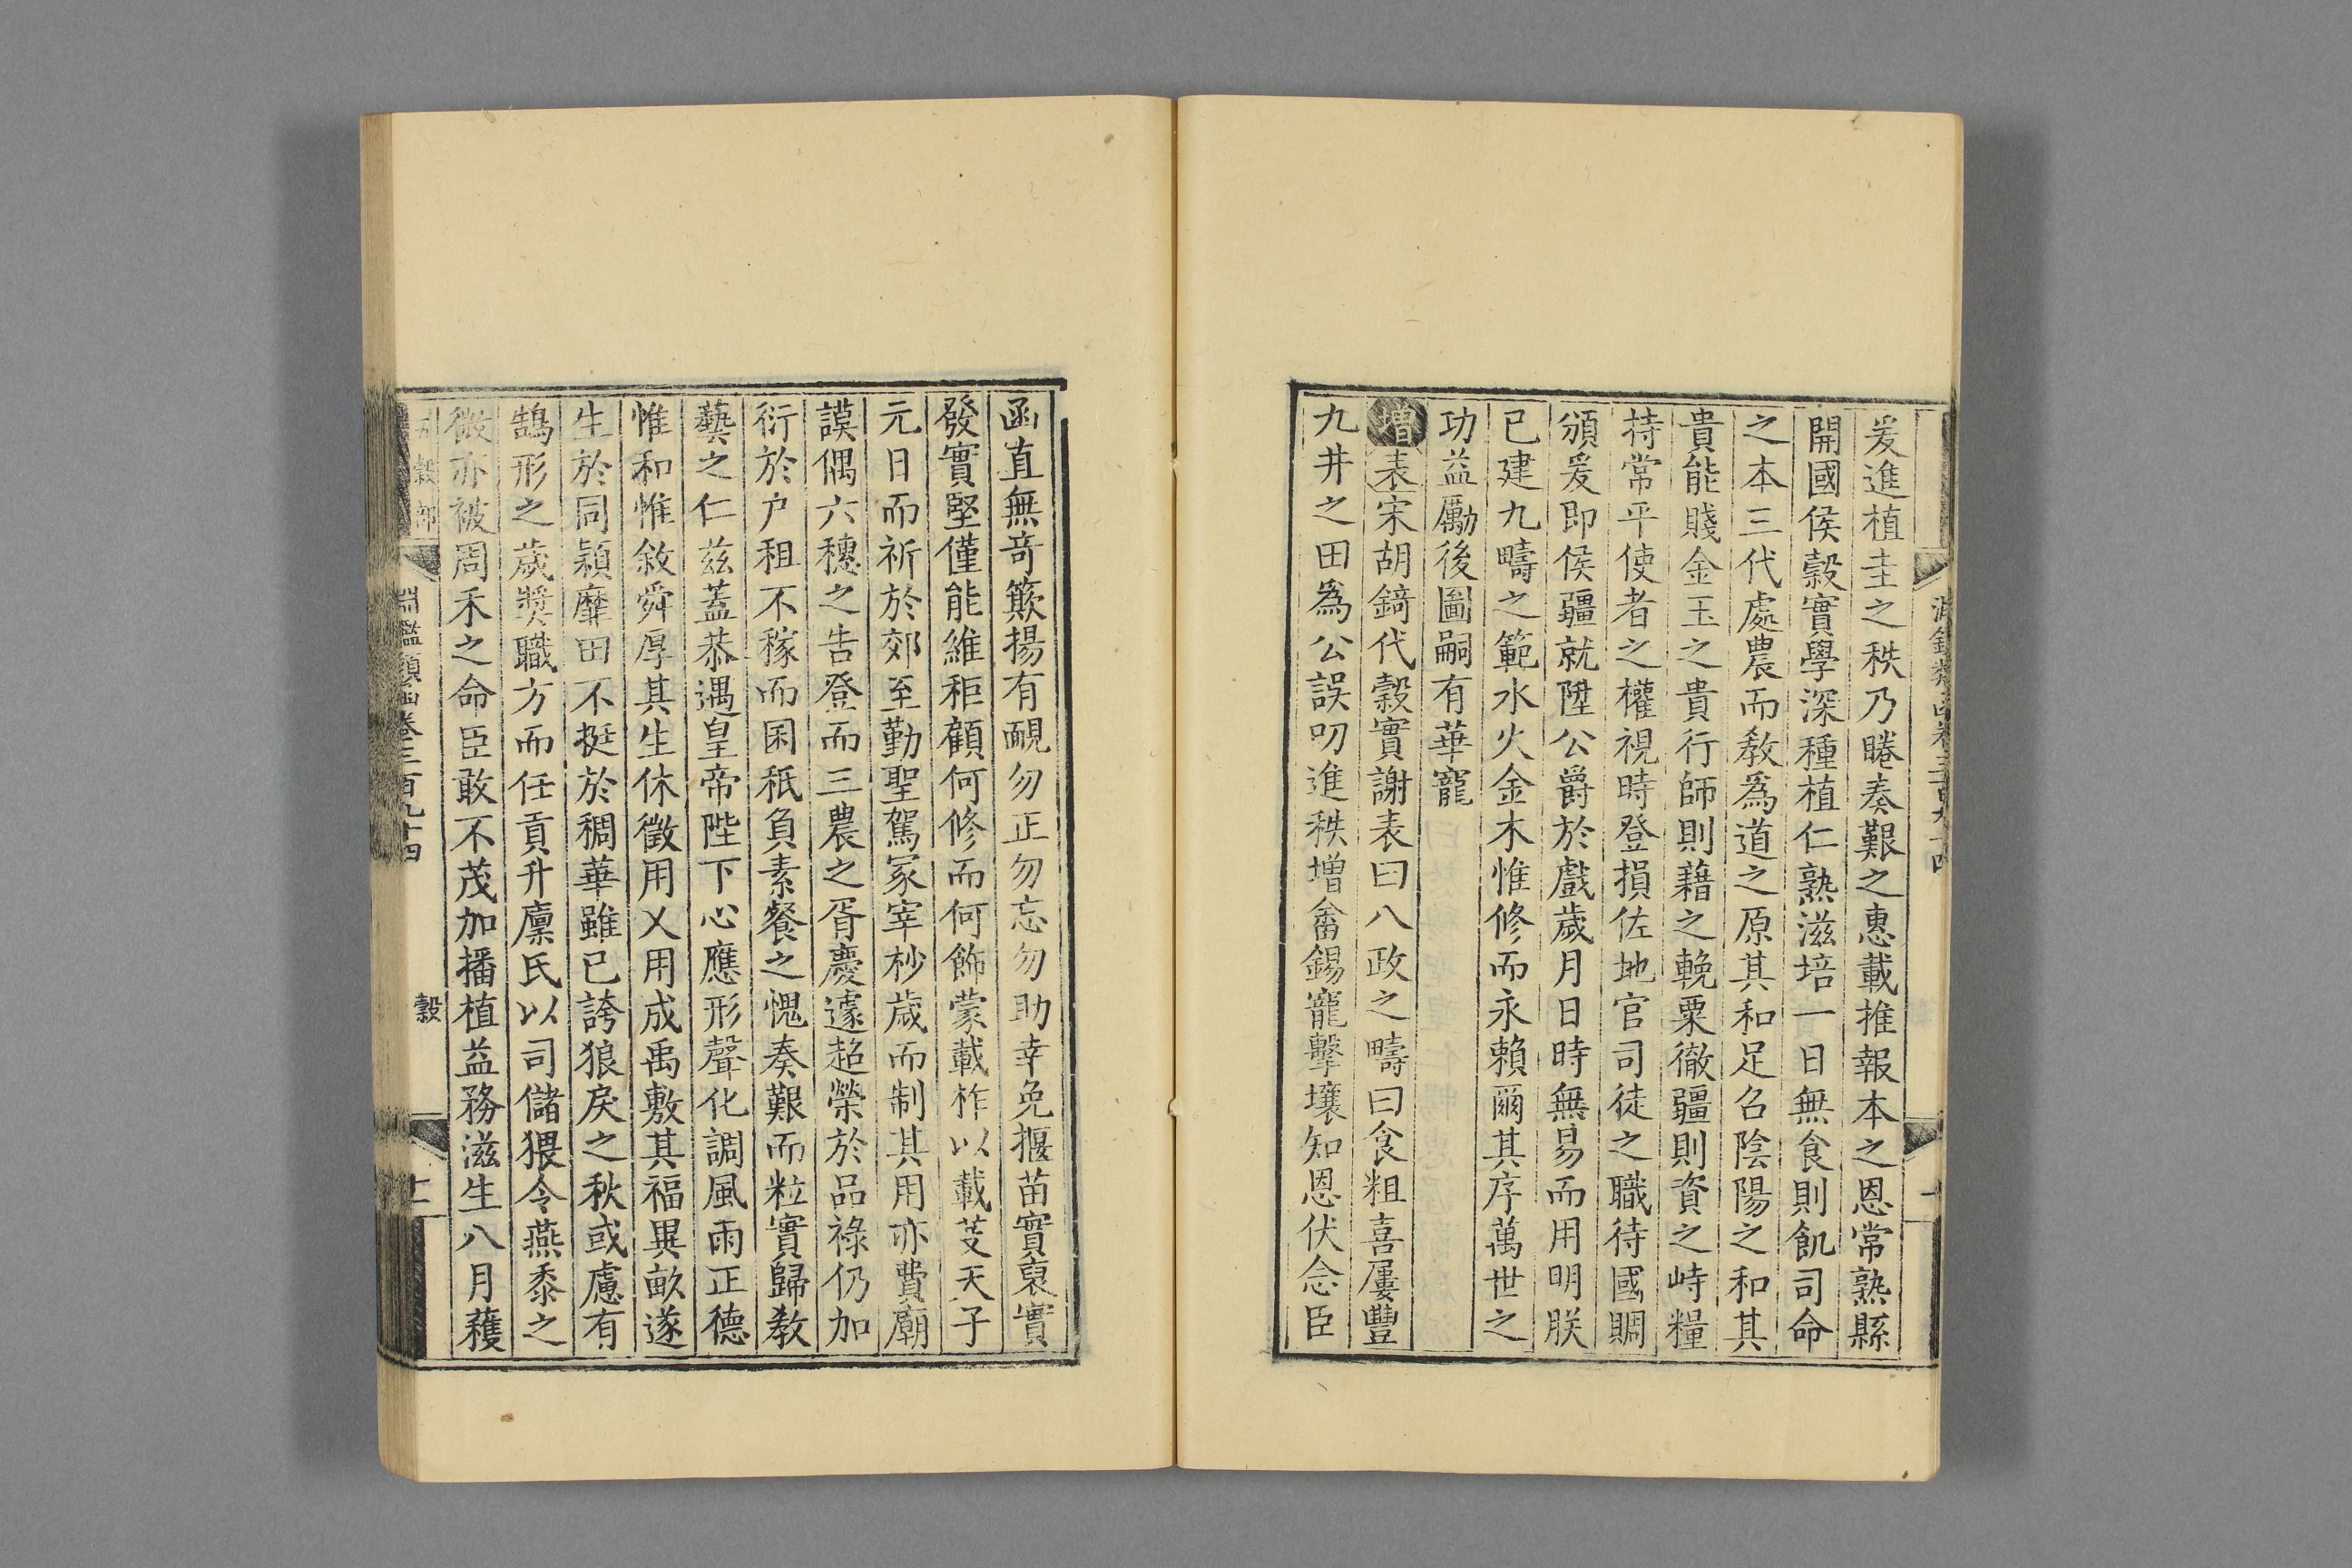 爰進植圭之秩乃睠奏艱之惠載推報本之恩常熟縣
開國侯穀實學深種植仁熟滋培一日無食則飢司命
之本三代處農而敎爲道之原其和足召陰陽之和其
貴能賤金玉之貴行師則藉之輓粟徹疆則資之峙糧
持常平使者之權視時登損佐地官司徒之職待國賙
頒爰即侯疆就陞公爵於戲歲月日時無易而用明朕
已建九疇之範水火金木惟修而永賴爾其序萬世之
功益勵後圖嗣有華寵
增表宋胡錡代穀實謝表曰八政之疇曰食粗喜屢豐
九井之田爲公誤叨進秩增畬錫寵擊壤知恩伏念臣
函直無奇簸揚有靦勿正勿忘勿助幸免揠苗實裒實
發實堅僅能維秬顧何修而何飾蒙載柞以載芟天子
元日而祈於郊至勤聖駕冢宰杪歲而制其用亦費廟
謨偶六穗之告登而三農之胥慶遽超榮於品祿仍加
衍於戸租不稼而囷秖負素餐之愧奏艱而粒實歸敎
藝之仁兹蓋恭遇皇帝陛下心應形聲化調風雨正德
惟和惟敘舜厚其生休徵用乂用成禹敷其福異畝遂
生於同穎靡田不挺於稠華雖已誇狼戾之秋或慮有
鵠形之歲奬職方而任貢升廩氏以司儲猥令燕黍之
微亦被周禾之命臣敢不茂加播植益務滋生八月穫
五穀部 淵鑑類函卷三百九十四 穀